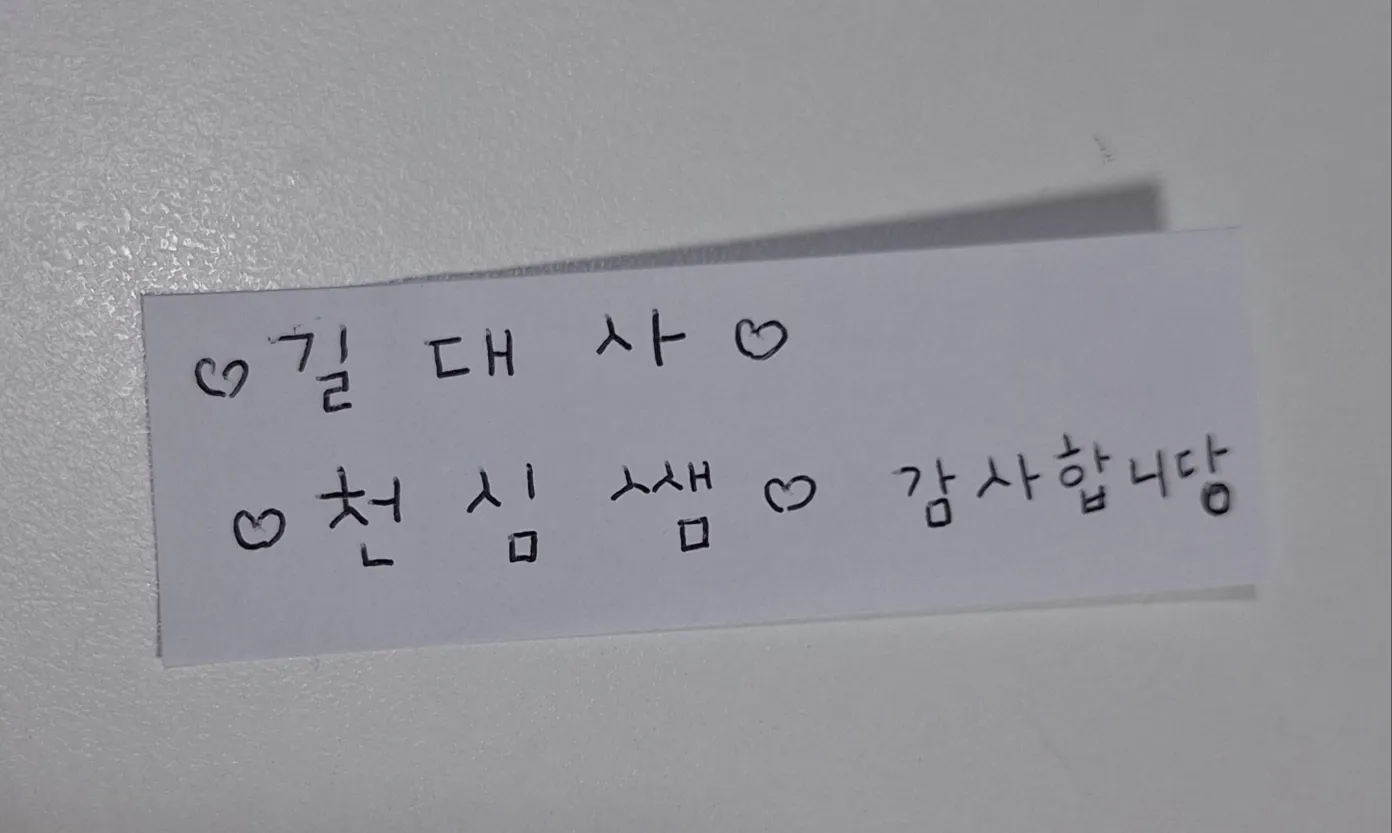 ♡길 대 사♡
♡천 심 쌤♡ 감사합니당